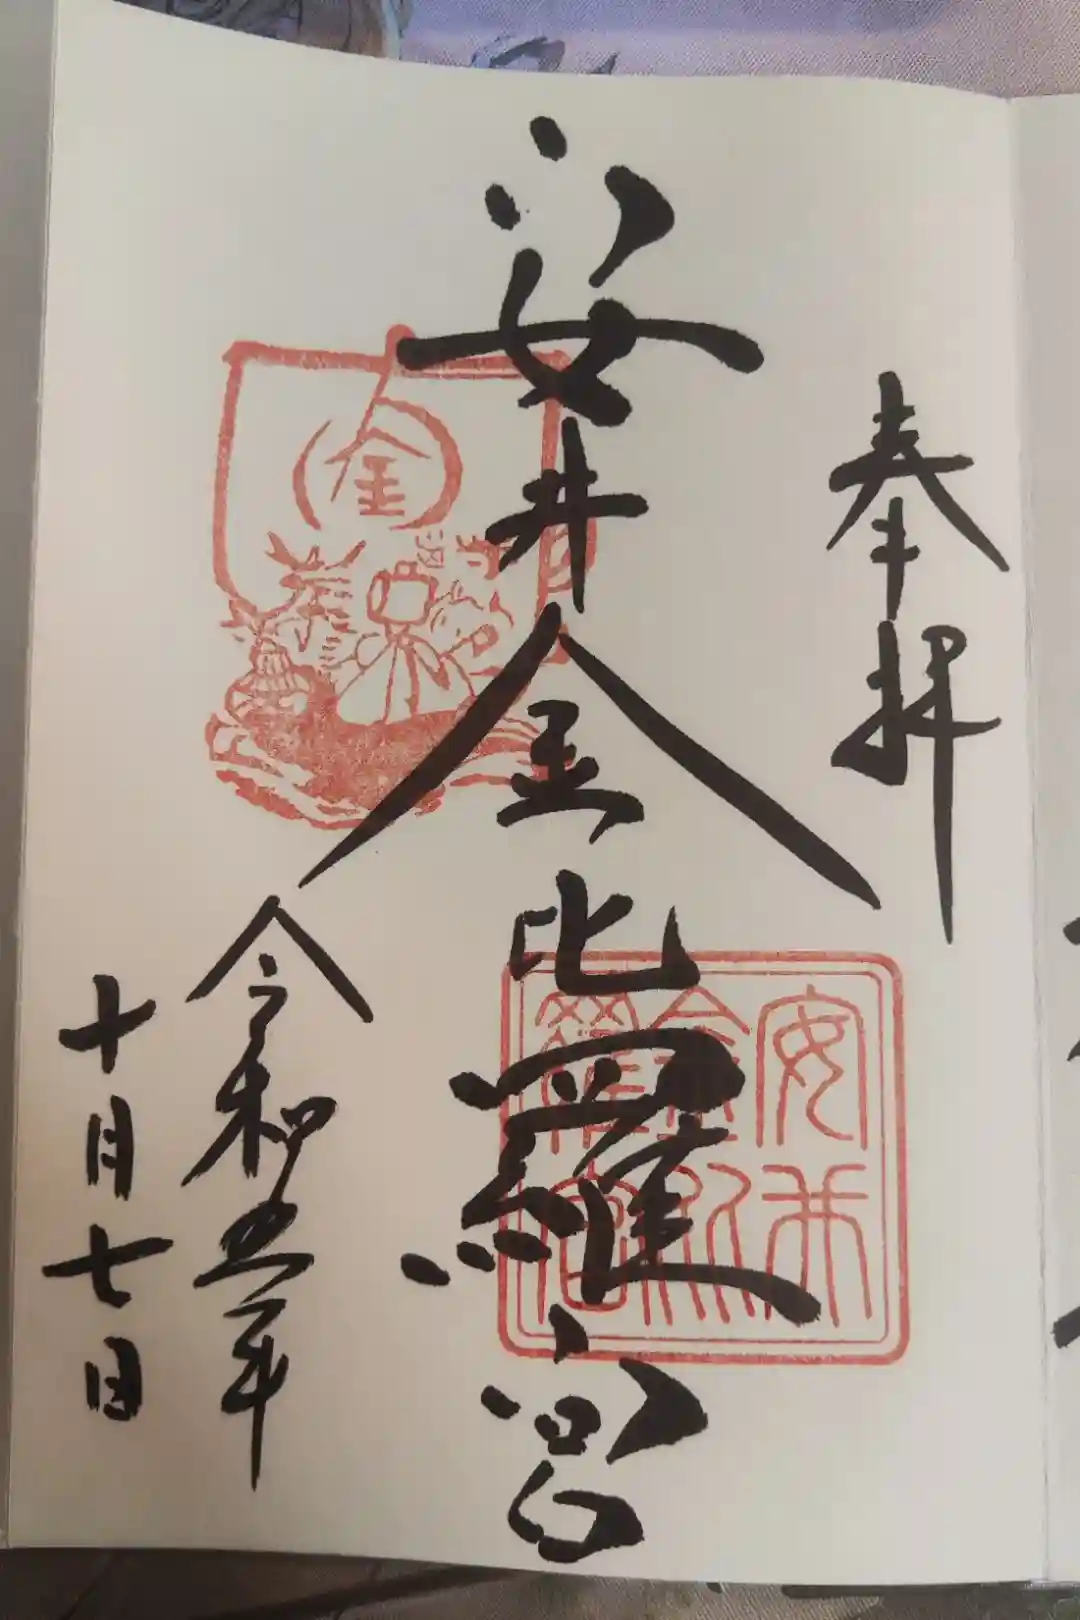 奉拝
安井金比羅宮
安井金比羅宮
金
令和五年
十月七日